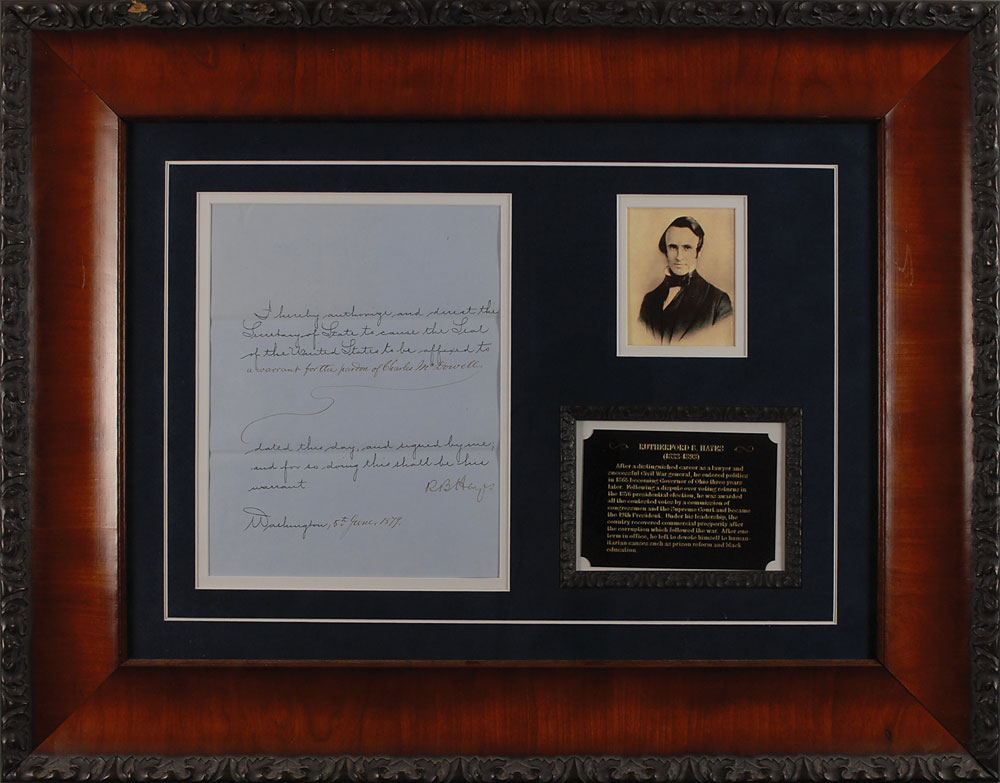 I hereby authorize and direct the
Secretary of State to cause the Seal
of the United States to be affixed to
a warrant for the pardon of Charles McDowell.
dated this day, and signed by me;
and for so doing this shall be his
warrant
R B Hayes
Washington, 5th June, 1879.
RUTHERFORD B. HAYES
(1822-1893)
After a distinguished career as a lawyer and
successful Civil War general, he entered politics
in 1865 becoming Governor of Ohio three years
later. Following a dispute over voting returns in
the 1876 presidential election, he was awarded
all the contested votes by a commission of
congressmen and the Supreme Court and became
the 19th President. Under his leadership, the
country recovered commercial prosperity after
the corruption which followed the war. After one
term in office, he left to devote himself to human-
itarian causes such as prison reform and black
education.